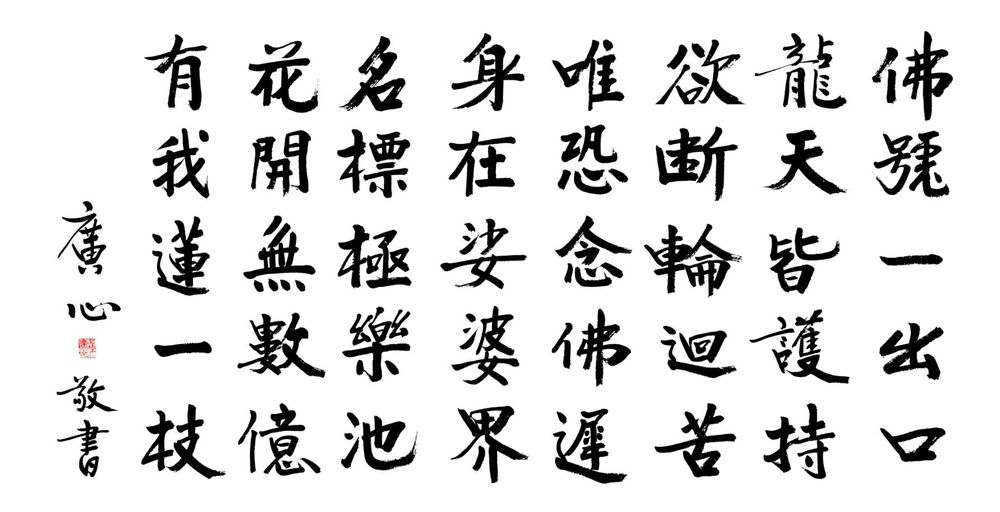 佛號一出口
龍天皆護持
欲断輪迴苦
唯恐念佛遲
身在娑婆界
名標極樂池
花開無數億
有我蓮一枝
廣心
敬書